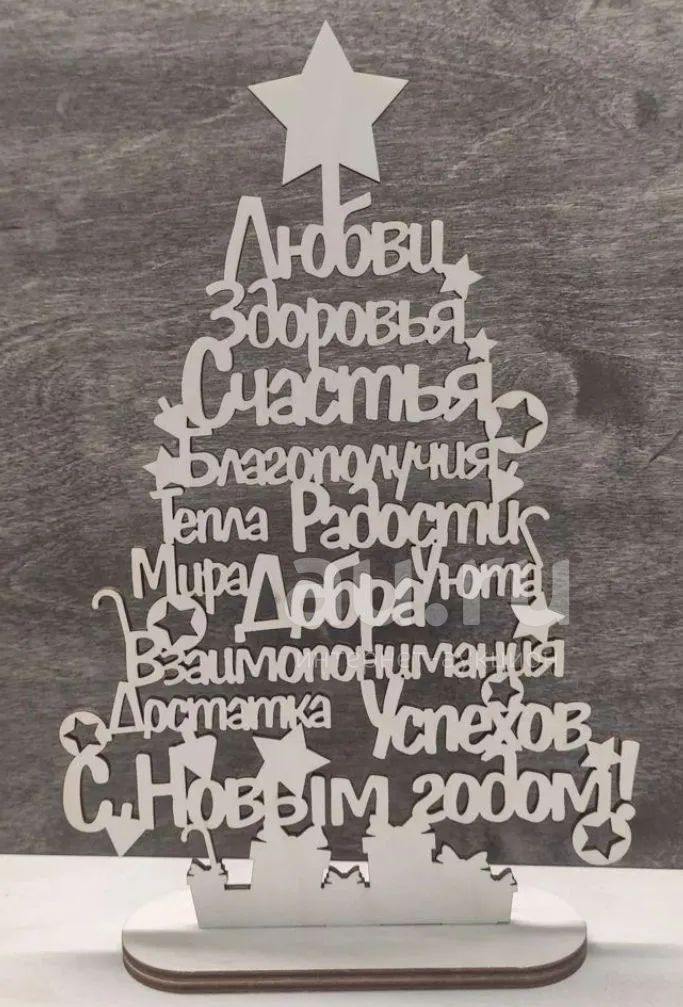 Любви
Здоровья
Счастья
Благополучия
Тепла Радости
Мира Добра Уюта
au.ru
Взаимопонимания
Достатка Успехов
С Новым годом!